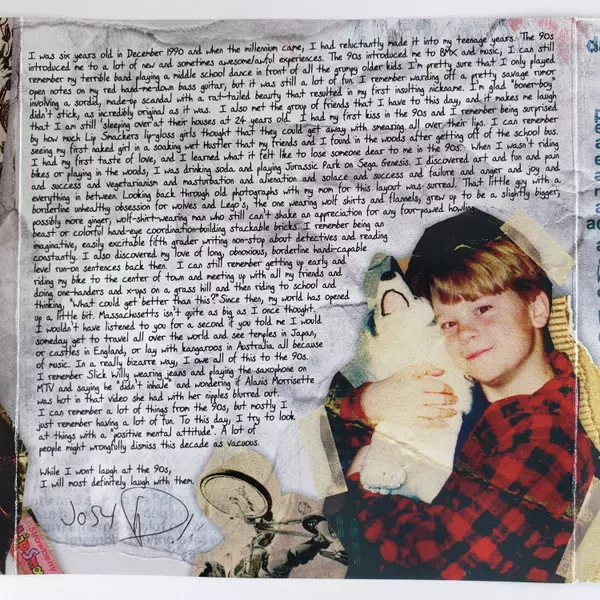 I was six years old in December 1990 and when the millenium came, I had reluctantly made it into my teenage years. The 90s
introduced me to a lot of new and sometimes awesome/awful experiences. The 90s introduced me to BMX and music, I can still
remember my terrible band playing a middle school dance in front of all the grumpy older kids. I'm pretty sure that I only played
open notes on my red hand-me-down bass guitar, but it was still a lot of fun. I remember warding off a pretty savage rumor
involving a sordid, made-up scandal with a rat-tailed beauty that resulted in my first insulting nickname. I'm glad "boner-boy"
didn't stick, as incredibly original as it was. I also met the group of friends that I have to this day, and it makes me laugh
that I am still sleeping over at their houses at 24 years old. I had my first kiss in the 90s and I remember being surprised
by how much Lip Smackers lip-gloss girls thought that they could get away with smearing all over their lips. I can remember
seeing my first naked girl in a soaking wet Hustler that my friends and I found in the woods after getting off of the school bus.
I had my first taste of love, and I learned what it felt like to lose someone dear to me in the 90s. When I wasn't riding
bikes or playing in the woods, I was drinking soda and playing Jurassic Park on Sega Genesis. I discovered art and fun and pain
and success and vegetarianism and masturbation and alienation and solace and success and failure and anger and joy and
everything in between. Looking back through old photographs with my mom for this layout was surreal. That little guy with a
borderline unhealthy obsession for wolves and Lego's, the one wearing wolf shirts and flannels, grew up to be a slightly bigger,
possibly more ginger, wolf-shirt-wearing man who still can't shake an appreciation for any four-pawed howling
beast or colorful hand-eye coordination-building stackable bricks. I remember being an
imaginative, easily excitable fifth grader writing non-stop about detectives and reading
constantly. I also discovered my love of long, obnoxious, borderline handi-capable
level run-on sentences back then. I can still remember getting up early and
riding my bike to the center of town and meeting up with all my friends and
doing one-handers and x-ups on a grass hill and then riding to school and
thinking, "What could get better than this?" Since then, my world has opened
up a little bit. Massachusetts isn't quite as big as I once thought.
I wouldn't have listened to you for a second if you told me I would
someday get to travel all over the world and see temples in Japan,
or castles in England, or lay with kangaroos in Australia all because
of music. In a really bizarre way, I owe all of this to the 90s.
I remember Slick Willy wearing jeans and playing the saxophone on
MTV and saying he "didn't inhale" and wondering if Alanis Morrisette
was hot in that video she had with her nipples blurred out.
I can remember a lot of things from the 90s, but mostly I
just remember having a lot of fun. To this day, I try to look
at things with a "positive mental attitude". A lot of
people might wrongfully dismiss this decade as vacuous.
While I wont laugh at the 90s,
I will most definitely laugh with them.
JOSY
Strawberry